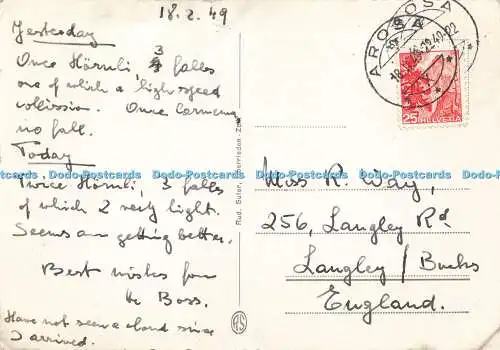 18.2.49
Yesterday
Once Hörnli, 3 falls
one of which a high speed
collission. Once Carmenna
no fall.
Today
Twice Hörnli, 3 falls
of which 2 very light.
Seems am getting better.
Best wishes from
the Boss.
Have not seen a cloud since
I arrived.
Rud. Suter, Oberrieden-Zch
AROSA
18.2.49-22
25 HELVETIA
Miss R. Way,
256, Langley Rd
Langley / Bucks
England.
Dodo-Postcards Dodo-Postcards Dodo-Postcards Dodo-Postcards Dodo-Postcards Dodo-Postcards